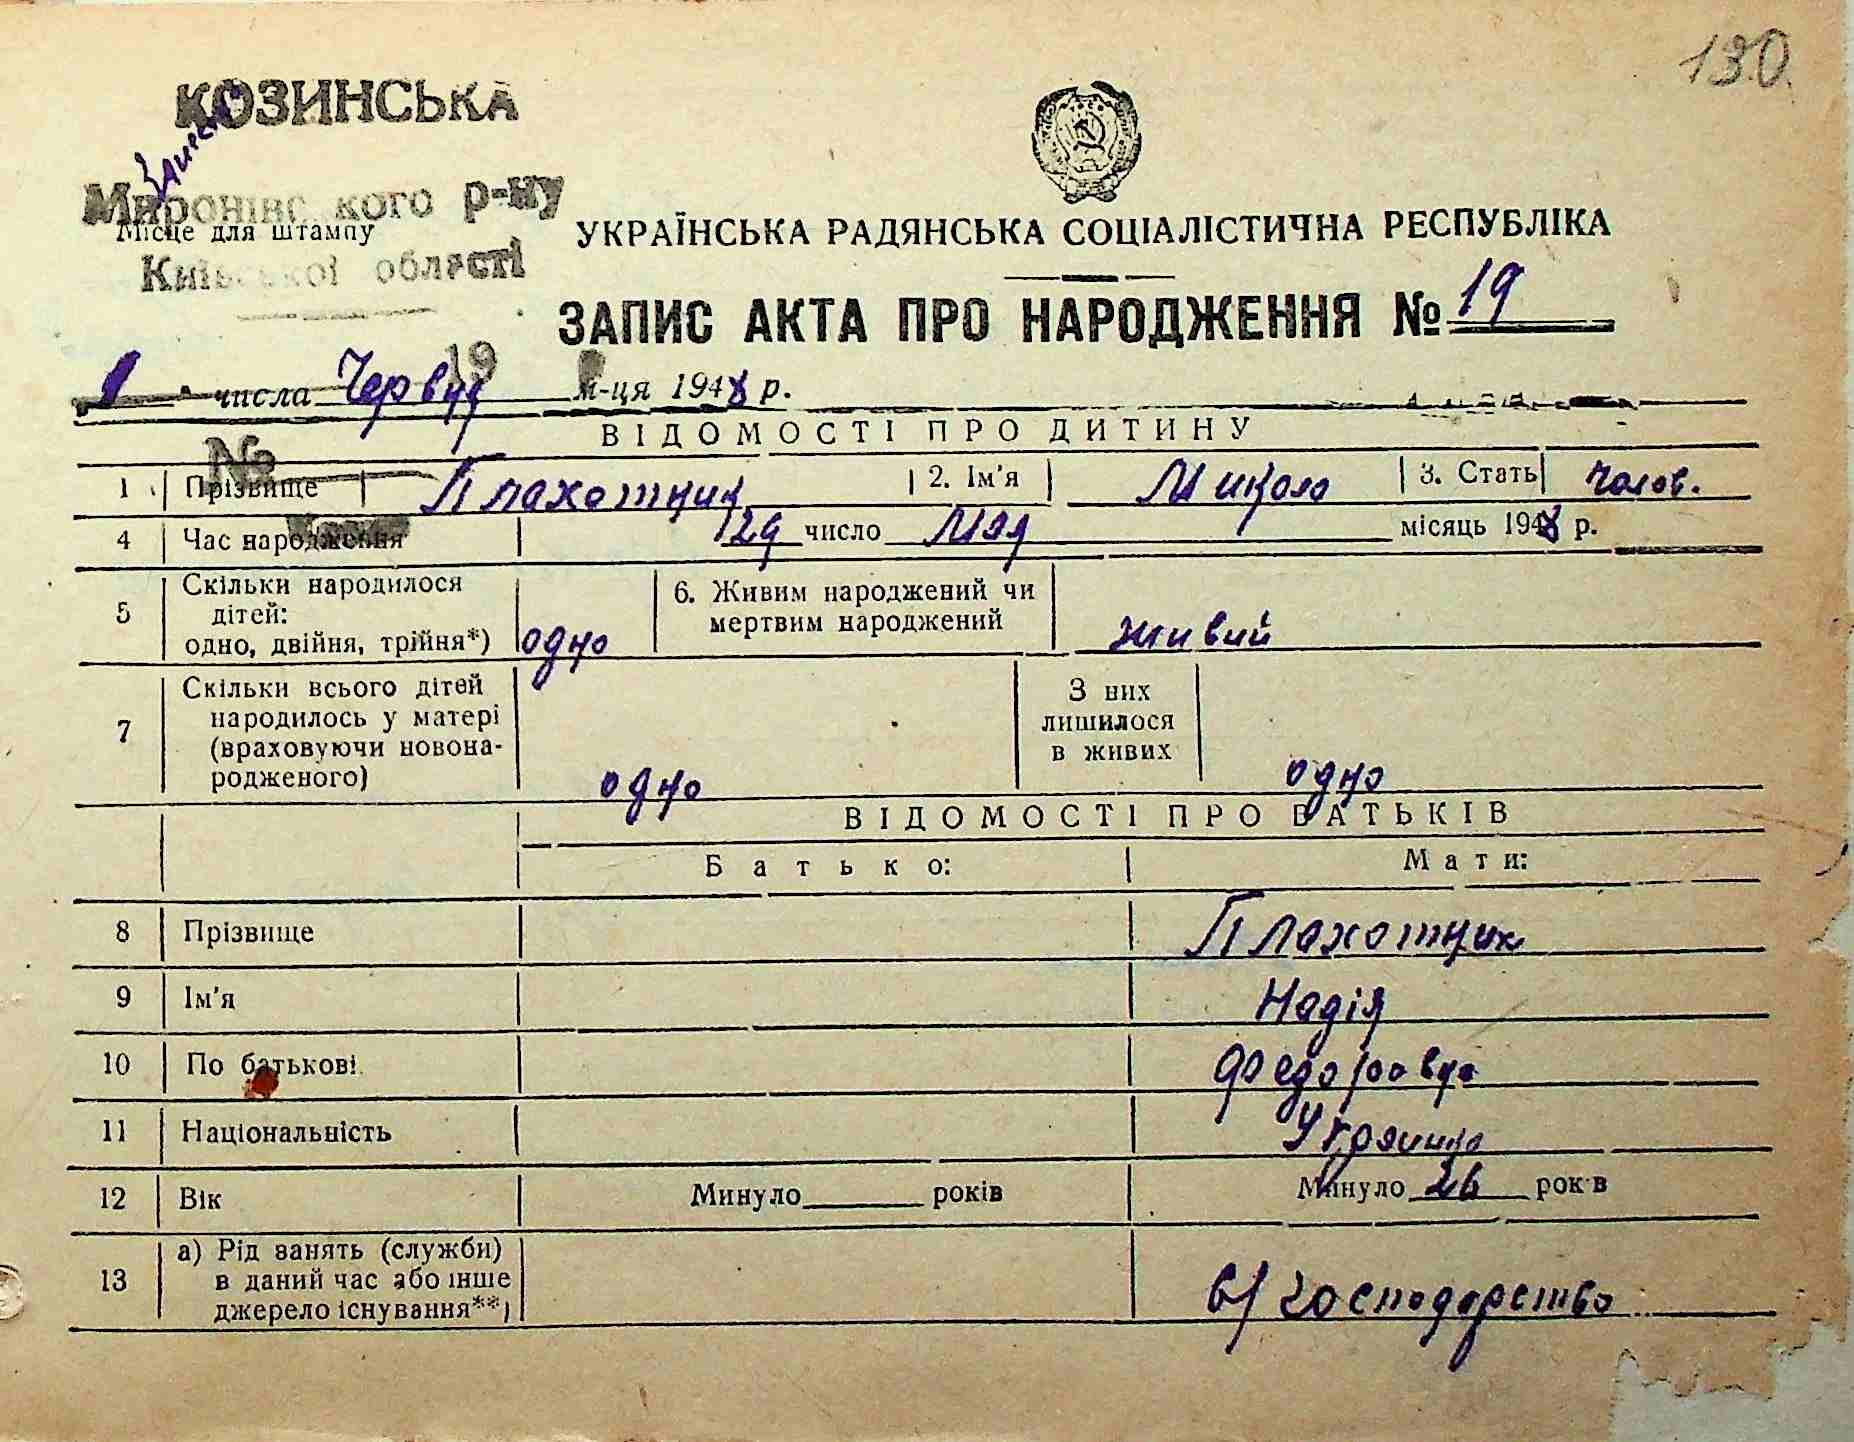 130.
КОЗИНСЬКА
Миронівс кого р-ну
Місце для штампу
Київської області
УКРАЇНСЬКА РАДЯНСЬКА СОЦІАЛІСТИЧНА РЕСПУБЛІКА
ЗАПИС АКТА ПРО НАРОДЖЕННЯ № 19
19
числа Червня м-ця 1948 р.
№
ВІДОМОСТІ ПРО ДИТИНУ
1 Прізвище Плахотник 2. Ім'я Микола 3. Стать Чолов.
4 Час народження 29 число Мая місяць 1948 р.
5 Скільки народилося дітей: одно, двійня, трійня*) одно 6. Живим народжений чи мертвим народжений живий
7 Скільки всього дітей народилось у матері (враховуючи новона-родженого) одно З них лишилося в живих одно
ВІДОМОСТІ ПРО БАТЬКІВ
Батько: Мати:
8 Прізвище Плахотник
9 Ім'я Надія
10 По батькові Федоровна
11 Національність Українка
12 Вік Минуло років Минуло 26 років
13 а) Рід занять (служби) в даний час або інше джерело існування**) в/господарство